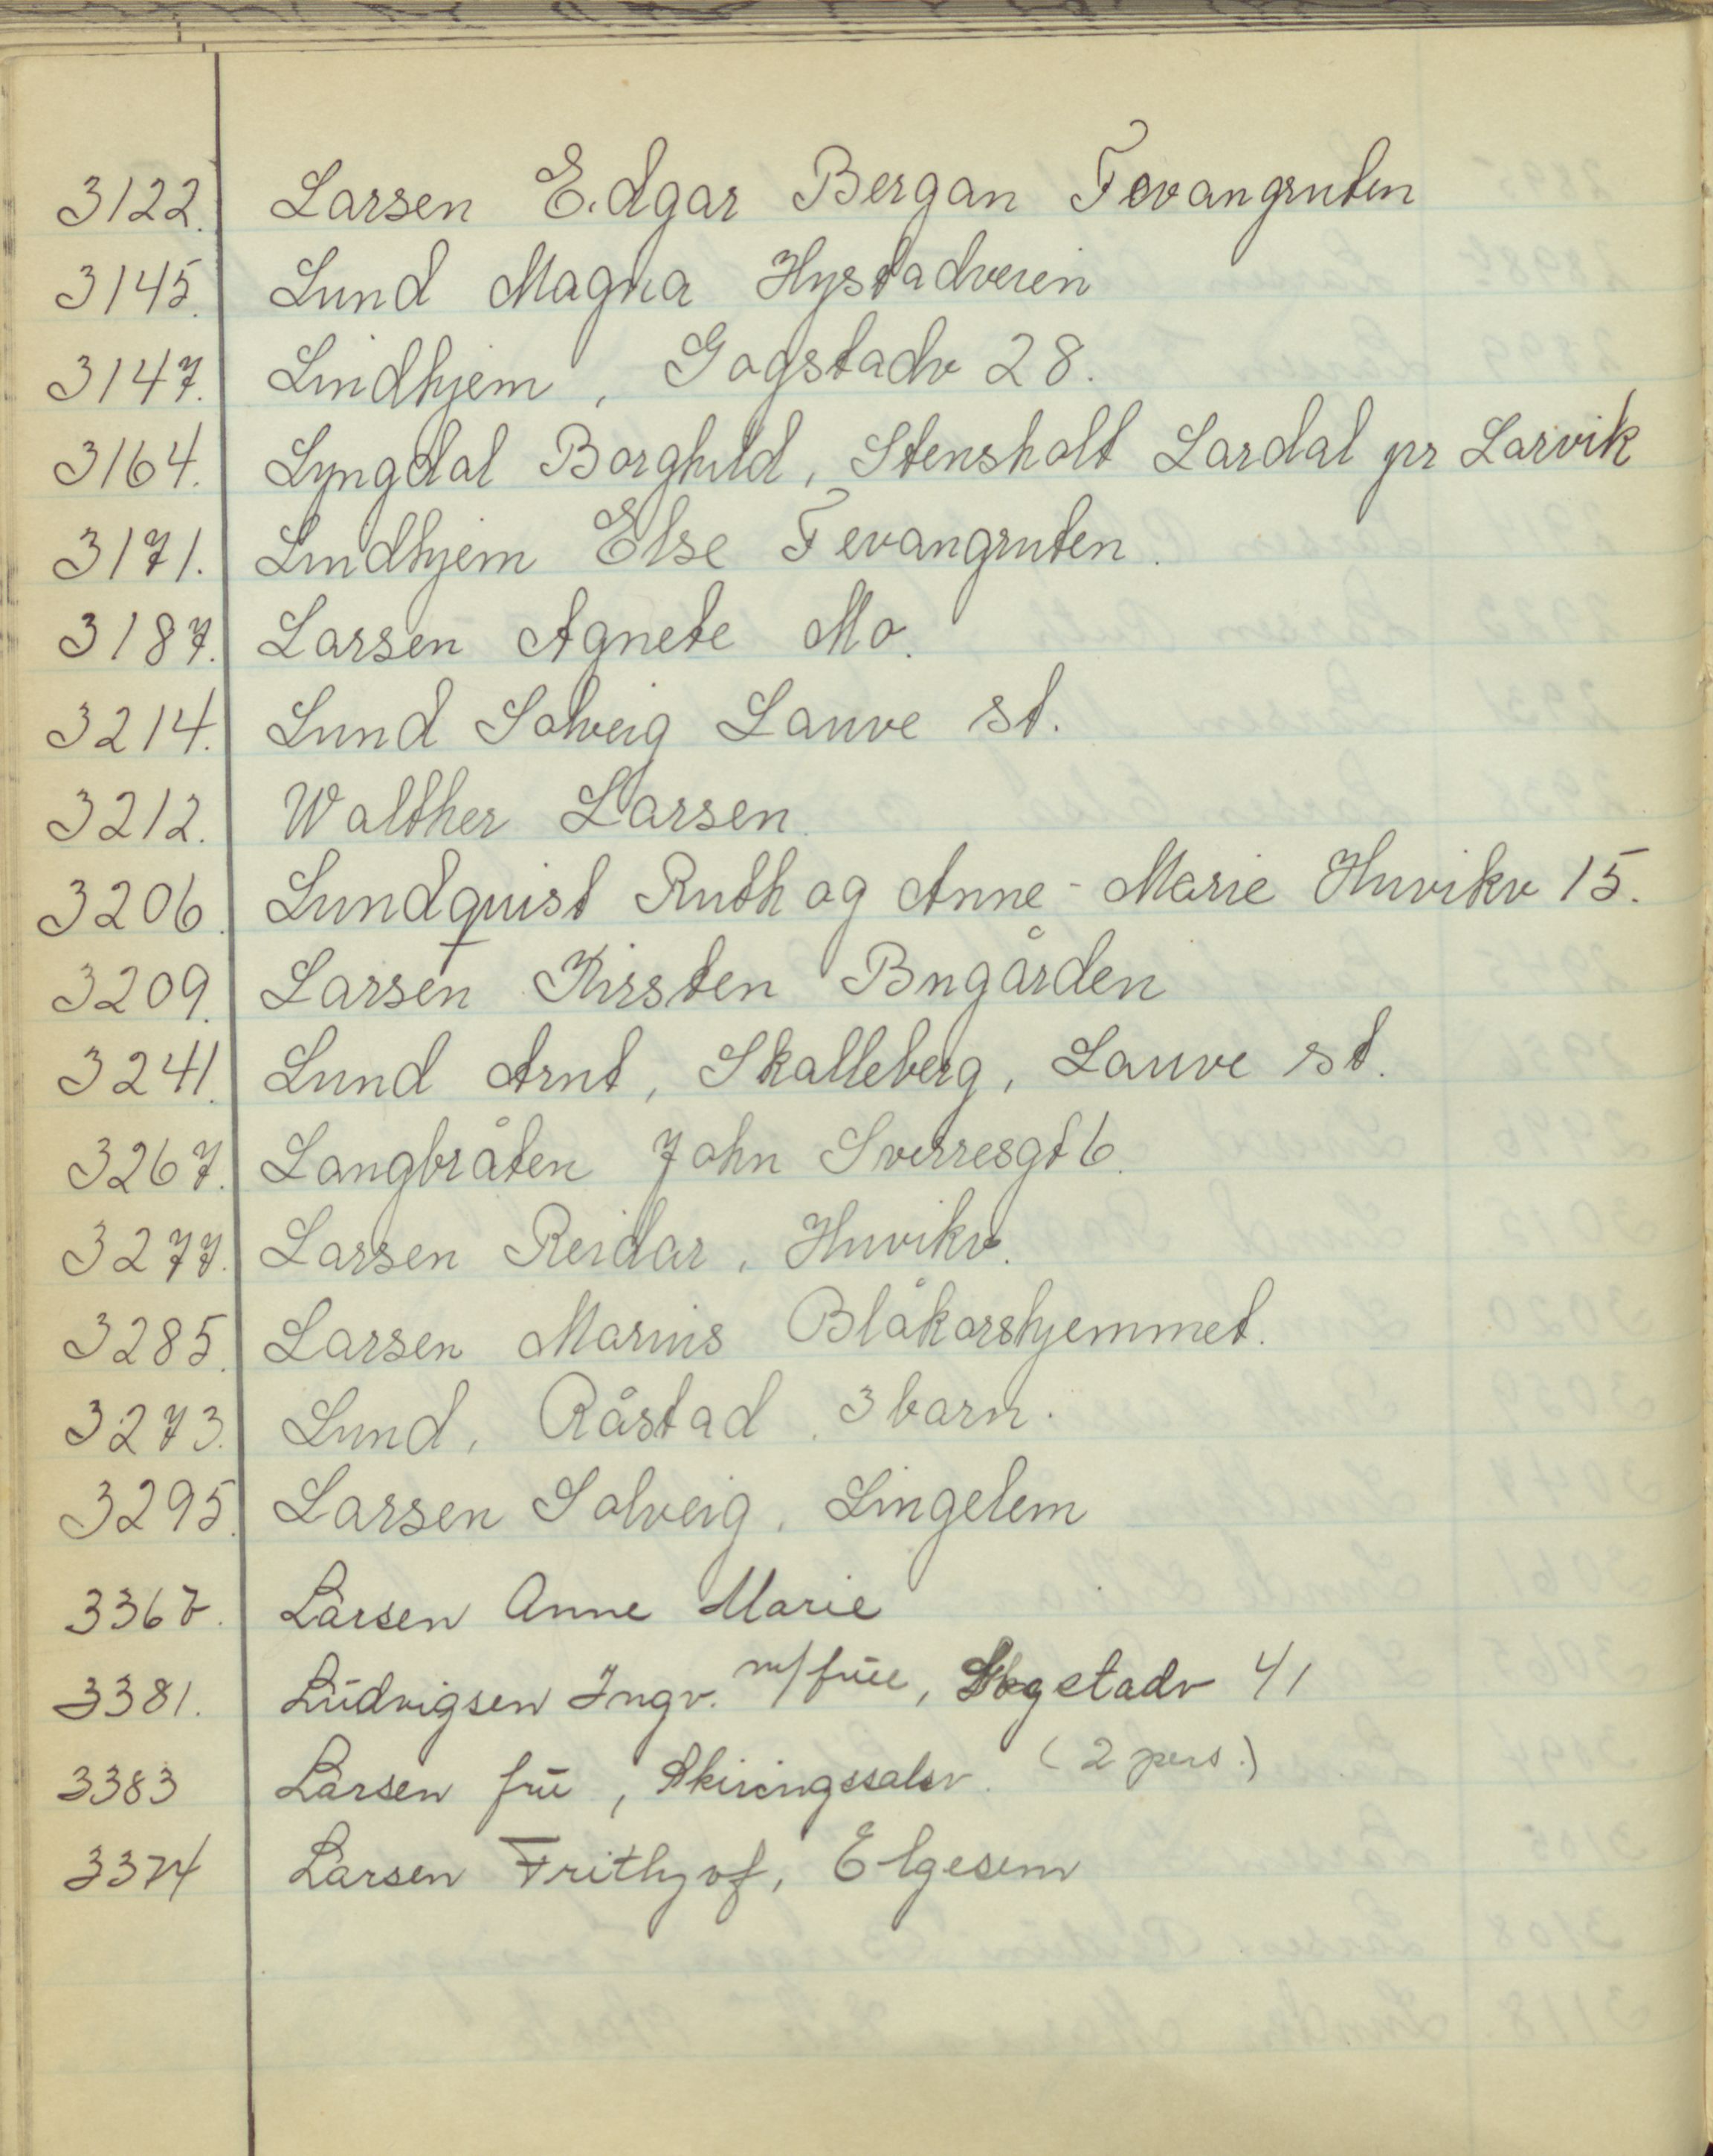 3122. Larsen Edgar Bergan Fevangruten
3145. Lund Magna Hystadveien
3147. Lindhjem, Gogstadv 28.
3164. Lyngdal Borghild, Stensholt Lardal pr Larvik
3171. Lindhjem Else Fevangruten.
3187. Larsen Agnete Mo.
3214. Lund Solveig Lauve st.
3212. Walther Larsen.
3206. Lundquist Ruth og Anne-Marie Huvikv 15.
3209. Larsen Kirsten Bugården
3241. Lund Arnt, Skalleberg, Lauve st.
3267. Langbråten John Sverresgt 6.
3277. Larsen Reidar, Huvikv.
3285. Larsen Marius Blåkorshjemmet.
3273. Lund, Råstad, 3 barn.
3295. Larsen Solveig, Lingelem
3367. Larsen Anne Marie
3381. Ludvigsen Ingv. m/frue, Gogstadv 41
3383 Larsen fru, Skiringssalsv. (2 pers.)
3374 Larsen Frithjof, Elgesem